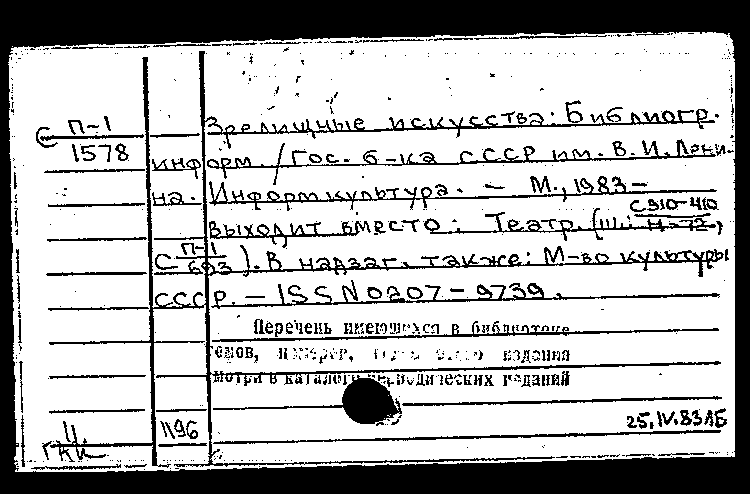 С П-1
1578
Зрелищные искусства: Библиогр.
информ. / Гос. б-ка СССР им. В. И. Лени-
на. Информкультура. – М., 1983 –
С 910-410
выходит вместо: Театр. (
С П-1
693). В надзаг. также: М-во культуры
СССР. – ISSN 0207-9739.
Перечень имеющихся в библиотеке
томов, номеров, издания
смотри в каталоге периодических изданий
1196
25.IV.83